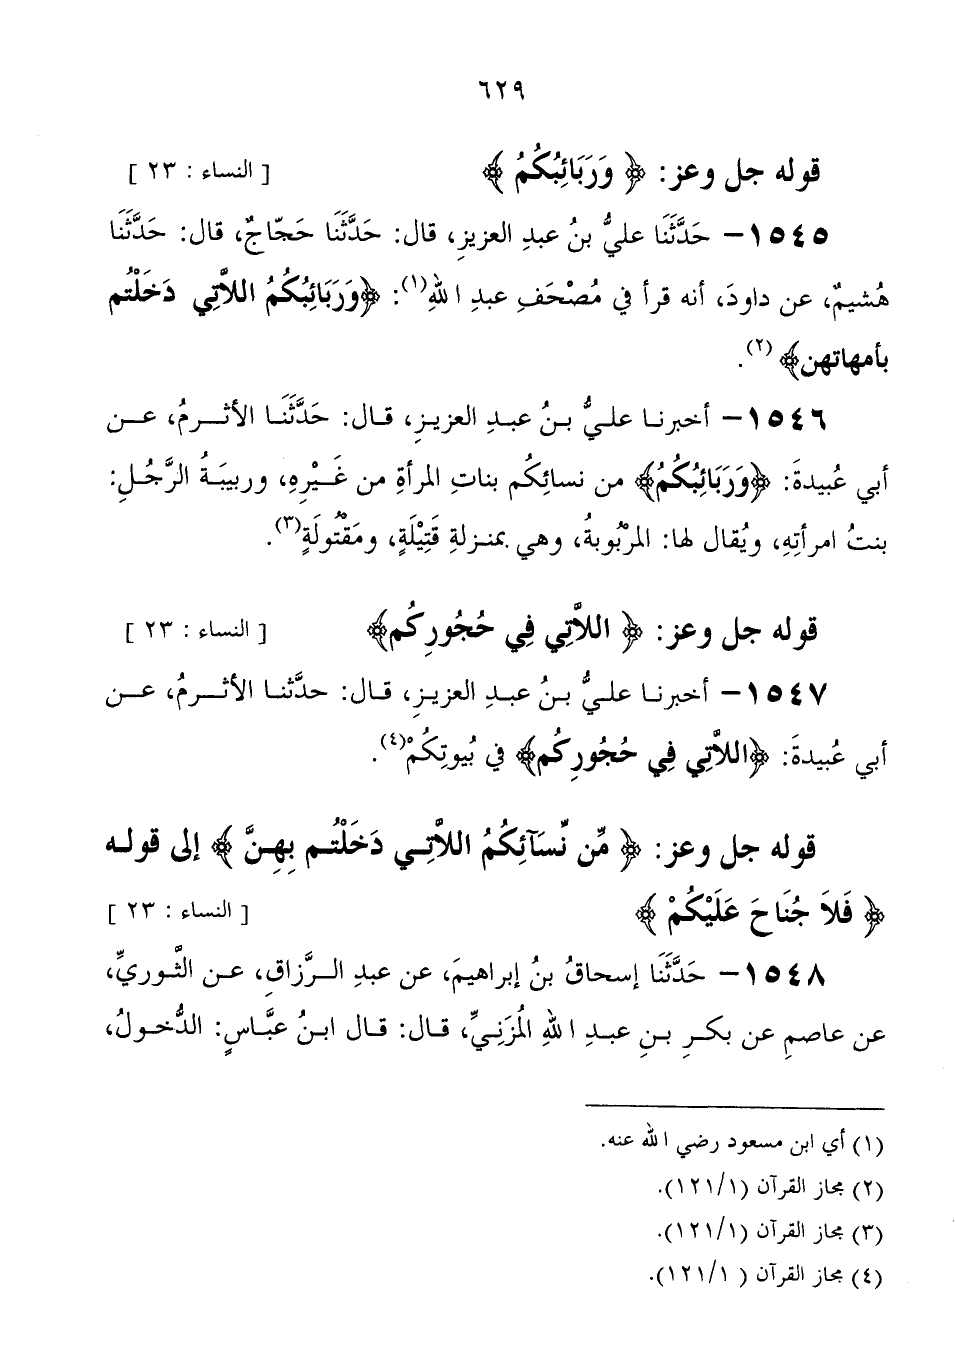 ٦٢٩
قوله جل وعز: ﴿ وَرَبَائِبُكُمُ ﴾ [ النساء : ٢٣ ]
١٥٤٥- حَدَّثَنَا عليُّ بنُ عبدِ العزيزِ، قال: حَدَّثَنَا حَجّاجٌ، قال: حَدَّثَنَا
هُشيمٌ، عن داودَ، أنه قرأ في مُصْحَفِ عبدِ اللهِ(١): ﴿وَرَبَائِبُكُمُ اللاَّتِي دَخَلْتُم
بأمهاتهن﴾ (٢).
١٥٤٦- أخبرنا عليُّ بنُ عبدِ العزيزِ، قال: حَدَّثَنَا الأثرمُ، عن
أبي عُبيدةَ: ﴿وَرَبَائِبُكُمُ﴾ من نسائِكُم بناتِ المرأةِ من غَيْرِهِ، وربيبَةُ الرَّجُلِ:
بنتُ امرأتِهِ، ويُقال لها: المرْبُوبةُ، وهي بمنزلةِ قَتِيْلَةٍ، ومَقْتُولَةٍ(٣).
قوله جل وعز: ﴿ اللاَّتِي فِي حُجُورِكُم﴾ [ النساء : ٢٣ ]
١٥٤٧- أخبرنا عليُّ بنُ عبدِ العزيزِ، قال: حدَّثنا الأثرمُ، عن
أبي عُبيدةَ: ﴿اللاَّتِي فِي حُجُورِكُم﴾ في بُيوتِكُمْ(٤).
قوله جل وعز: ﴿ مِّن نِّسَآئِكُمُ اللاَّتِي دَخَلْتُم بِهِنَّ ﴾ إلى قوله
﴿ فَلاَ جُنَاحَ عَلَيْكُمْ ﴾ [ النساء : ٢٣ ]
١٥٤٨- حَدَّثَنَا إسحاقُ بنُ إبراهيمَ، عن عبدِ الرَّزاقِ، عن الثَّوريِّ،
عن عاصمِ عن بكرِ بنِ عبدِ اللهِ المُزَنِيِّ، قال: قال ابنُ عبَّاسٍ: الدُّخولُ،
(١) أي ابن مسعود رضي الله عنه.
(٢) مجاز القرآن (١٢١/١).
(٣) مجاز القرآن (١٢١/١).
(٤) مجاز القرآن ( ١٢١/١).